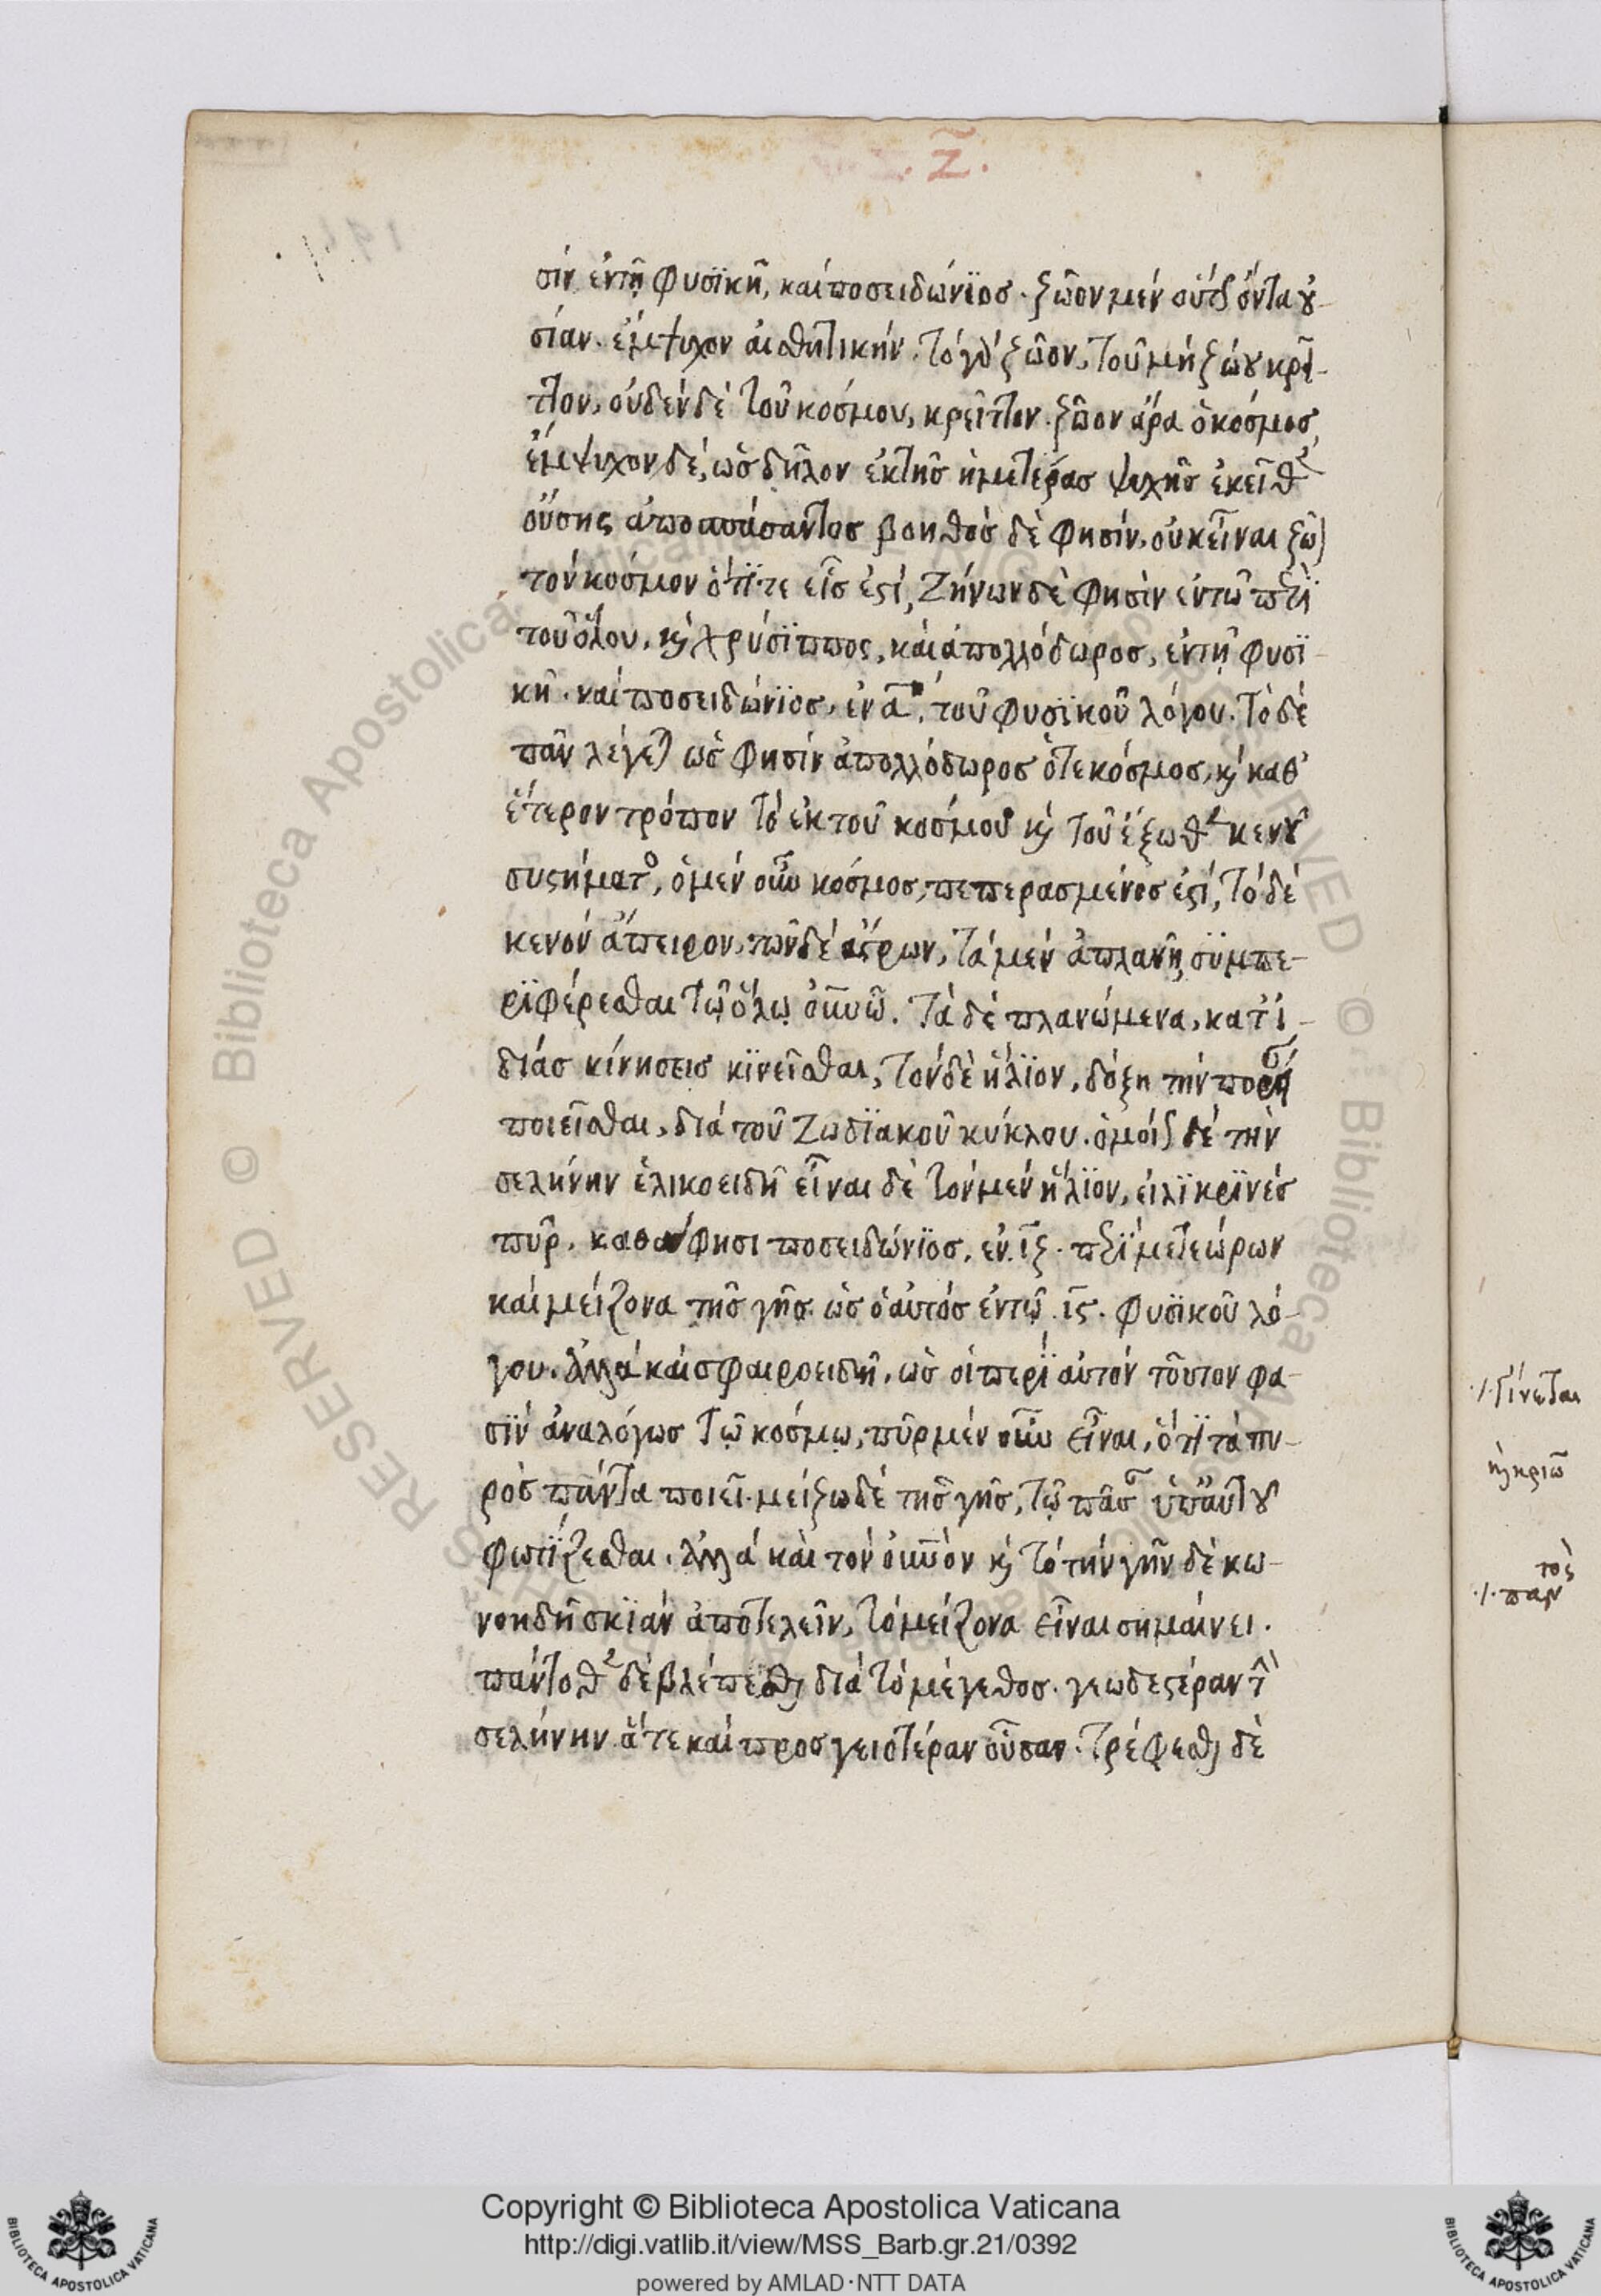 .Ζ̃.
σίν ἐντῆ φυσϊκῆ, καί ποσειδώνϊοσ. ζῶον μέν οὕτς ὄντα ȣ-
σίαν. ἔμψυχον ἀισθητικήν. τό γὰρ ζῶον, τοῦ μή ζώȣ κρεῖτ-
τον, οὐδέν δὲ τοῦ κόσμου, κρεῖττον. ζῶον ἄρα ὁ κόσμοσ,
ἔμψυχον δέ, ὡσ δῆλον ἐκ τῆσ ἡμετέρασ ψυχῆσ ἐκεῖθεν
οὔσης ἀποσπάσαντοσ βοηθόσ δὲ φησίν, οὐκ εἶναι ζῶον
τόν κόσμον ὅτϊ τε εἷσ ἐϛί, Ζήνων δὲ φησὶν ἐν τῶ περὶ
τοῦ ὅλου, καὶ χρύσϊππος, καί ἀπολλόδωροσ, ἐν τῆ φυσϊ-
κῆ. καί ποσειδώνϊοσ, ἐν ᾱ, τοῦ φυσϊκοῦ λόγου. Τὸ δέ
πᾶν λέγεται ὡσ φησίν ἀπολλόδωροσ ὅτε κόσμοσ, καὶ καθ'
ἕτερον τρόπον τό ἐκ τοῦ κοσμου καὶ τοῦ ἔξωθεν κενȣ
συϛήματος, ὁ μέν οὖν κόσμοσ, πεπερασμένοσ ἐϛί, τὸ δέ
κενόν ἄπειρον, τῶν δέ ἄϛρων, τά μέν ἀπλανῆ, σϋμπε-
ρϊφέρεσθαι τῶ ὅλω οὐνῶ. Τά δέ πλανώμενα, κατ' ἰ-
διάσ κίνησεισ κϊνεῖσθαι, τόν δὲ ἥλϊον, λόξη τήν πορείαν
ποιεῖσθαι, διά τοῦ Ζωδϊακοῦ κύκλου. ὁμοίς δέ τήν
σελήνην ἑλικοειδῆ εἶναι δὲ τόν μέν ἥλϊον, εἰλϊκρϊνέσ
πῦρ. καθά φησι ποσειδώνϊοσ, ἐν ιζ. περὶ μετεώρων
καί μείζονα τῆσ γῆσ ὡσ ὁ αὐτόσ ἐν τῶ ιϛ. φυσϊκοῦ λό-
γου. ἀλλά καί σφαιροειδῆ, ὡσ οἱ περί αὐτόν τοῦτον φα-
σϊν ἀναλόγωσ τῶ κόσμω, πῦρ μέν οὖν εἶναι, ὅτϊ τά πυ-
ρὸσ πάντα ποιεῖ. μείζω δέ τῆσ γῆσ, τῶ πᾶσαν ὑπ' αὐτȣ
φωτίζεσθαι. ἀλλά καὶ τόν οὐνόν καὶ τό τήν γῆν δὲ κω-
νοηδῆ σκϊάν ἀποτελεῖν, τό μείζονα εἶναι σημαίνει.
πάντοθεν δέ βλέπεσθαι διά τό μέγεθοσ. γεωδεϛέραν τὴν
σελήνην ἅτε καί προσγειοτέραν οὖσαν. Τρέφεσθαι δὲ
·/· γίνεται
καὶ κριῶ
τοσ
·/· παρ
Copyright © Biblioteca Apostolica Vaticana
http://digi.vatlib.it/view/MSS_Barb.gr.21/0392
powered by AMLAD·NTT DATA